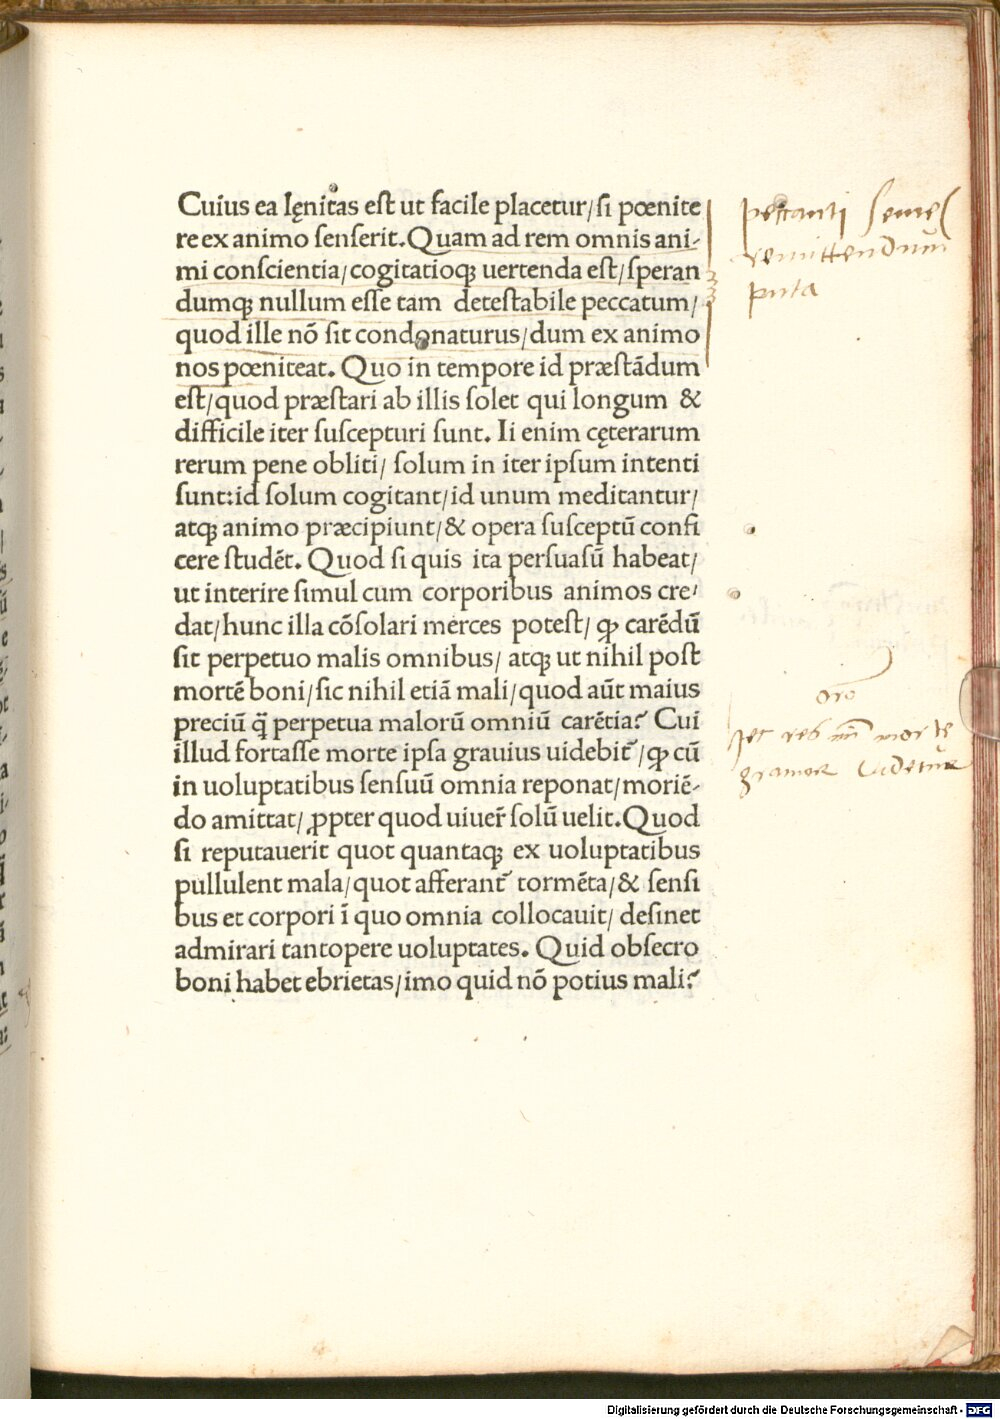 Cuius ea lęnitas est ut facile placetur/si pœnite
re ex animo senserit. Quam ad rem omnis ani-
mi conscientia/cogitatioqꝫ uertenda est/speran
dumqꝫ nullum esse tam detestabile peccatum/
quod ille nõ sit condonaturus/dum ex animo
nos pœniteat. Quo in tempore id præstãdum
est/quod præstari ab illis solet qui longum &
difficile iter suscepturi sunt. Ii enim cęterarum
rerum pene obliti/ solum in iter ipsum intenti
sunt:id solum cogitant/id unum meditantur/
atqꝫ animo præcipiunt/& opera susceptũ confi
cere studẽt. Quod si quis ita persuasũ habeat/
ut interire simul cum corporibus animos cre-
dat/hunc illa cõsolari merces potest/ ꝙ carẽdũ
sit perpetuo malis omnibus/ atqꝫ ut nihil post
mortẽ boni/sic nihil etiã mali/quod aũt maius
preciũ q̃ perpetua malorũ omniũ carẽtia? Cui
illud fortasse morte ipsa grauius uidebit᷑/ꝙ cũ
in uoluptatibus sensuũ omnia reponat/moriẽ-
do amittat/ ꝓpter quod uiuer̃ solũ uelit. Quod
si reputauerit quot quantaqꝫ ex uoluptatibus
pullulent mala/quot afferant᷑ tormẽta/& sensi
bus et corpori ĩ quo omnia collocauit/ desinet
admirari tantopere uoluptates. Quid obsecro
boni habet ebrietas/imo quid nõ potius mali?
peccanti semel
remittendum
puta
morte
Digitalisierung gefördert durch die Deutsche Forschungsgemeinschaft - DFG